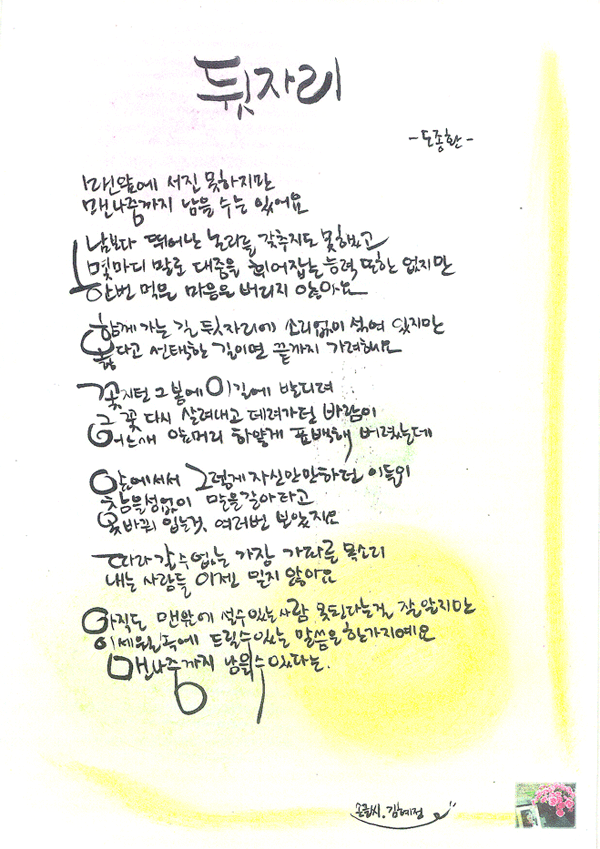 뒷자리
-도종환-
맨앞에 서진 못하지만
맨나중까지 남을 수는 있어요
남보다 뛰어난 논리를 갖추지도 못했고
몇마디 말로 대중을 휘어잡는 능력 또한 없지만
한번 먹은 마음을 버리지 않아요
함께 가는 길 뒷자리에 소리없이 섞여 있지만
옳다고 선택한 길이면 끝까지 가려해요
꽃지던 그 봄에 이길에 발디뎌
그 꽃 다시 살려내고 데려가던 바람이
어느새 앞머리 하얗게 표백해 버렸는데
앞에서서 그렇게 자신만만하던 이들이
참을성없이 말을갈아타고
옷바꿔 입는것 여러번 보았지요
따라갈수없는 가장 가파른 목소리
내는 사람들 이젠 믿지 않아요
아직도 맨앞에 설수있는사람 못된다는걸 잘 알지만
이 세월 속에 드릴수있는 말씀은 한가지예요
맨나중까지 남을수있다는.
손글씨. 김혜정